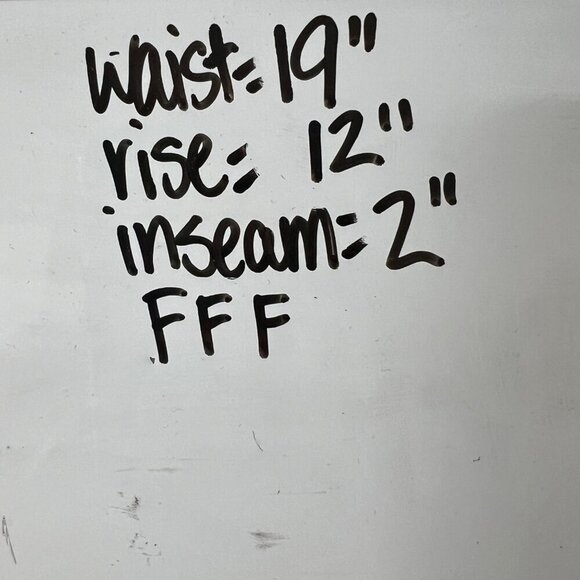 waist= 19"
rise= 12"
inseam= 2"
FFF